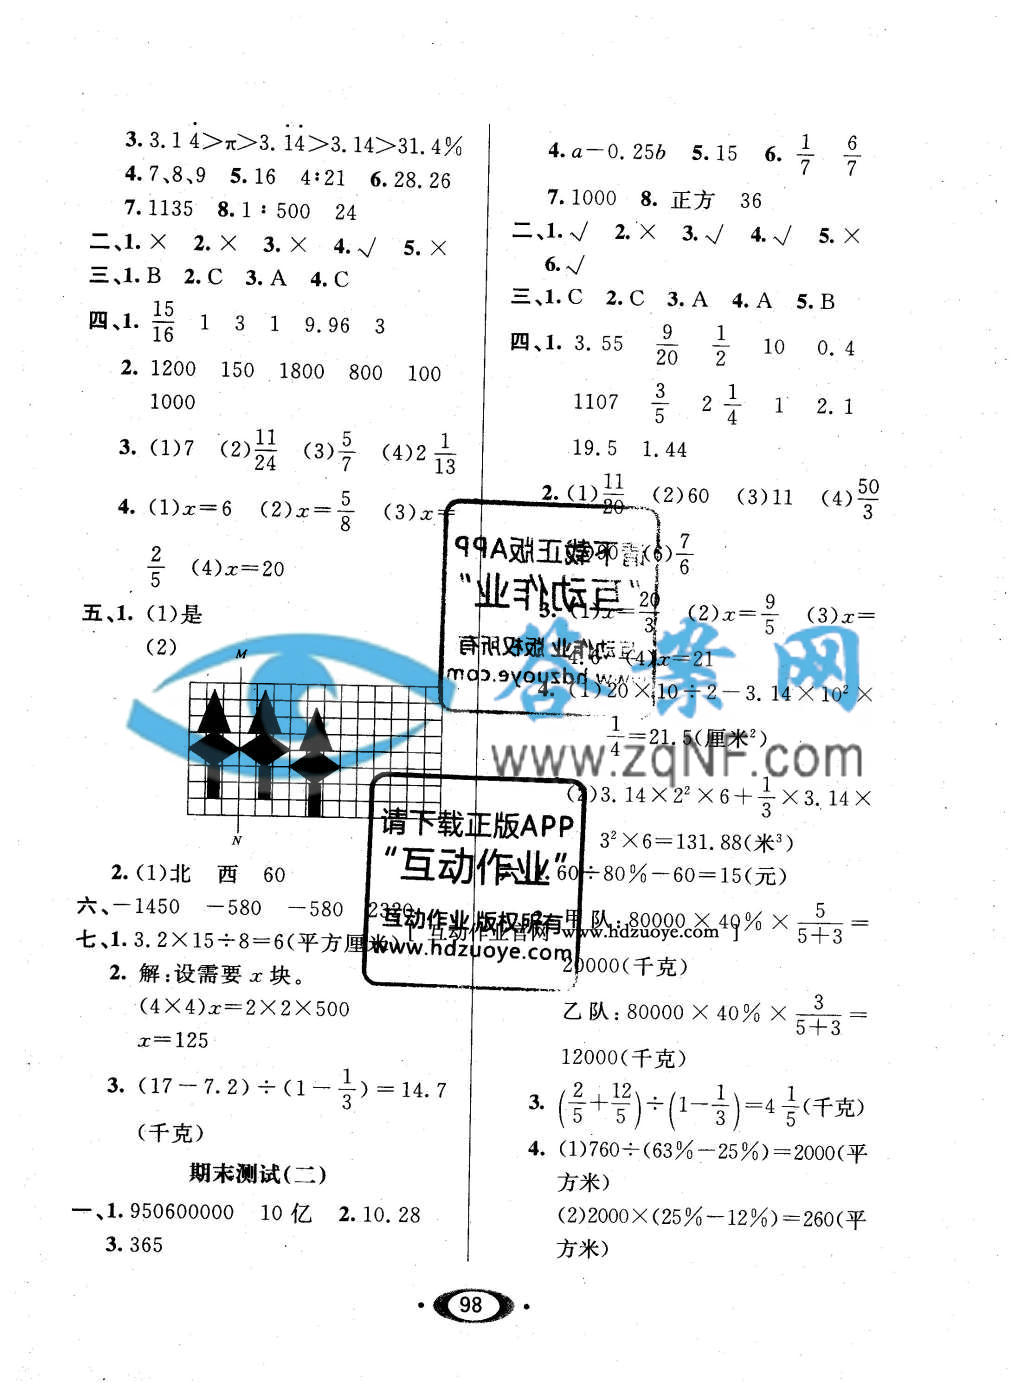 3. 3.14̇>π>3.1̇4̇>3.14>31.4%
4. 7、8、9 5. 16 4∶21 6. 28.26
7. 1135 8. 1∶500 24
二、1. × 2. × 3. × 4. √ 5. ×
三、1. B 2. C 3. A 4. C
四、1. 15/16 1 3 1 9.96 3
2. 1200 150 1800 800 100
1000
3. (1)7 (2)11/24 (3)5/7 (4)2 1/13
4. (1)x=6 (2)x=5/8 (3)x=
2/5 (4)x=20
五、1. (1)是
(2)
M
N
2. (1)北 西 60
六、-1450 -580 -580 2320
七、1. 3.2×15÷8=6(平方厘米)
2. 解:设需要 x 块。
(4×4)x=2×2×500
x=125
3. (17-7.2)÷(1-1/3)=14.7
(千克)
期末测试(二)
一、1. 950600000 10亿 2. 10.28
3. 365
4. a-0.25b 5. 15 6. 1/7 6/7
7. 1000 8. 正方 36
二、1. √ 2. × 3. √ 4. √ 5. ×
6. √
三、1. C 2. C 3. A 4. A 5. B
四、1. 3.55 9/20 1/2 10 0.4
1107 3/5 2 1/4 1 2.1
19.5 1.44
2. (1)11/20 (2)60 (3)11 (4)50/3
(6)7/6
3. (1)x=20/3 (2)x=9/5 (3)x=
(4)x=21
4. (1)20×10÷2-3.14×10²×
1/4=21.5(厘米²)
(2)3.14×2²×6+1/3×3.14×
3²×6=131.88(米³)
1. 60÷80%-60=15(元)
甲队:80000×40%×5/5+3=
20000(千克)
乙队:80000×40%×3/5+3=
12000(千克)
3. (2/5+12/5)÷(1-1/3)=4 1/5(千克)
4. (1)760÷(63%-25%)=2000(平
方米)
(2)2000×(25%-12%)=260(平
方米)
98
请下载正版APP
“互动作业”
互动作业 版权所有
www.hdzuoye.com
请下载正版APP
“互动作业”
互动作业 版权所有
www.hdzuoye.com
[ 互动作业官网 www.hdzuoye.com ]
答案网
www.zqNF.com